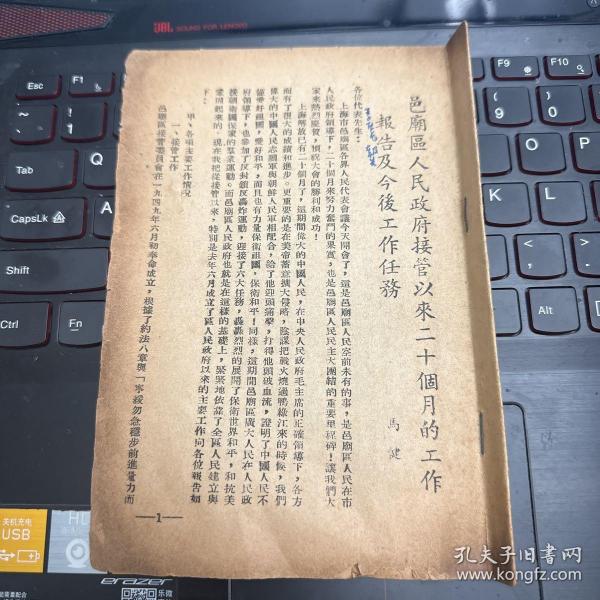 邑廟區人民政府接管以來二十個月的工作
報告及今後工作任務
馬健
各位代表先生：
上海市邑廟區各界人民代表會議今天開會了，這是邑廟區人民空前未有的事，是邑廟區人民在市
人民政府領導下，二十個月來努力奮鬥的果實，也是邑廟區人民民主大團結的重要里程碑！讓我們大
家來熱烈慶賀，預祝大會的勝利和成功！
上海解放已有二十個月了，這期間偉大的中國人民，在中央人民政府毛主席的正確領導下，各方
面有了很大的成績和進步。更重要的是在美帝蓄意擴大侵略，陰謀把戰火燒過鴨綠江來的時候，我們
偉大的中國人民志願軍與朝鮮人民軍相配合，給了他迎頭痛擊，打得他頭破血流，證明了中國人民不
僅愛好祖國，愛好和平，而且也有力量保衛祖國，保衛和平！同樣，這期間邑廟區廣大人民在人民政
府領導下，也參加了反封鎖反轟炸運動，迎接了六大任務，轟轟烈烈的展開了保衛世界和平，和抗美
援朝衛國保家的羣眾運動。而邑廟區人民政府也就是在這樣的基礎上，緊緊地依靠了全區人民建立與
鞏固起來的。現在我把從接管以來，特別是去年六月成立了區人民政府以來的主要工作向各位報告如
下：
甲、各項主要工作情況
一、接管工作
邑廟區接管委員會在一九四九年六月初奉命成立，根據了約法八章與「寧緩勿急穩步前進量力而
—1—
JBL
SOUND FOR LENOVO
Esc
Tab
CapsLk
Shift
Ctrl
Fn
关机充电
USB
erazer
F9
F10
孔夫子旧书网
www.kongfz.com